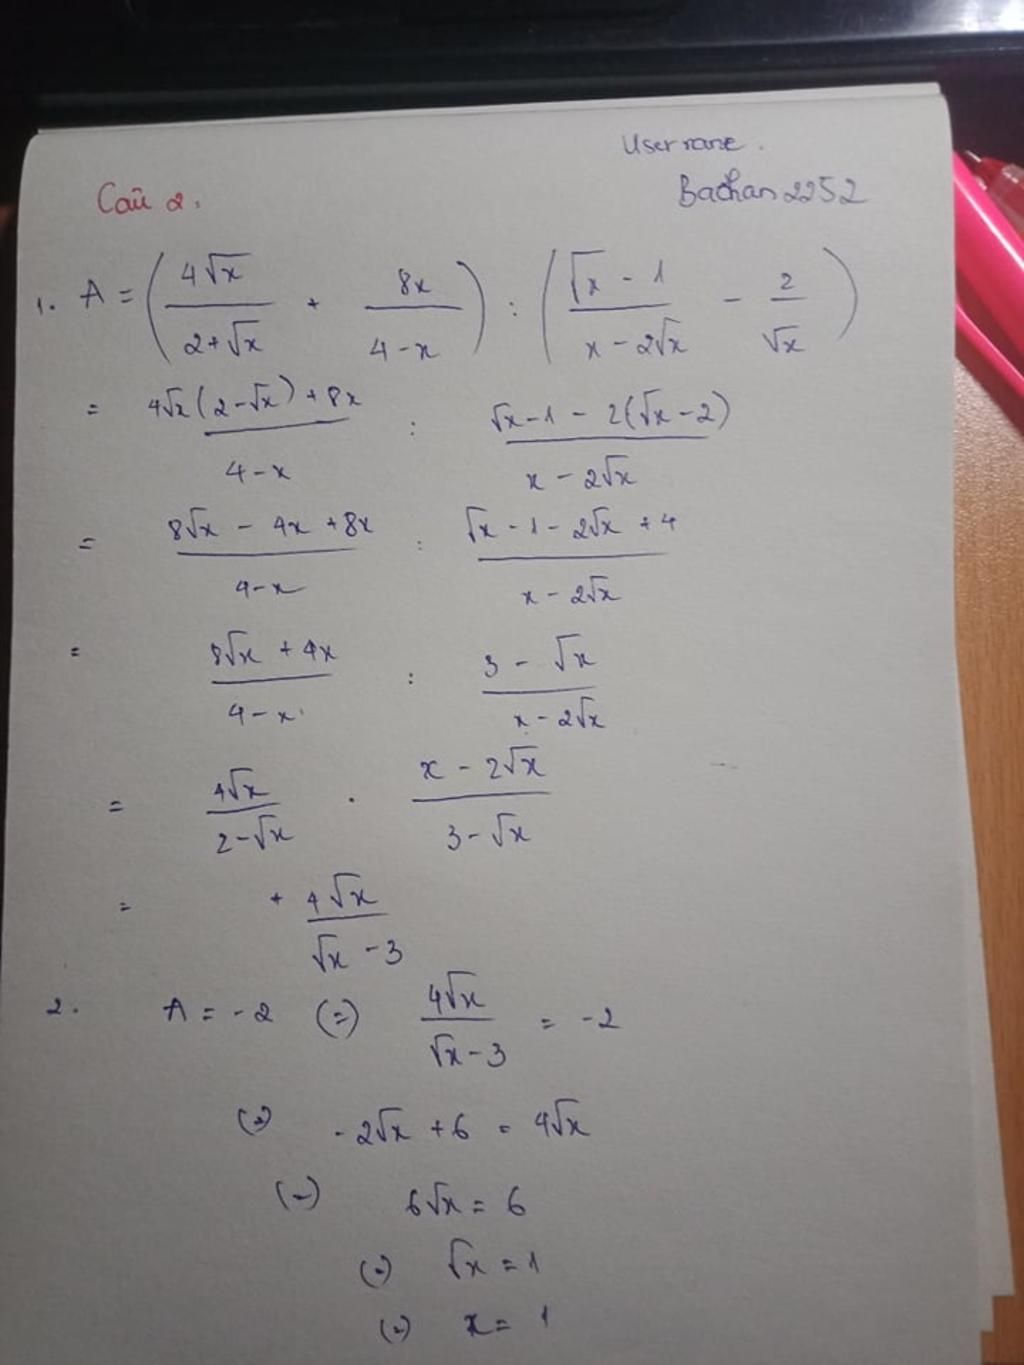 Username.
Câu 2.
Bachan2252
1. A = (4√x / 2+√x + 8x / 4-x) : (√x - 1 / x - 2√x - 2 / √x)
= 4√x(2-√x) + 8x / 4-x : √x-1 - 2(√x-2) / x - 2√x
= 8√x - 4x + 8x / 4-x : √x - 1 - 2√x + 4 / x - 2√x
= 8√x + 4x / 4-x : 3 - √x / x - 2√x
= 4√x / 2-√x . x - 2√x / 3-√x
= + 4√x / √x - 3
2. A = -2 (=) 4√x / √x - 3 = -2
(=) -2√x + 6 = 4√x
(=) 6√x = 6
(=) √x = 1
(=) x = 1